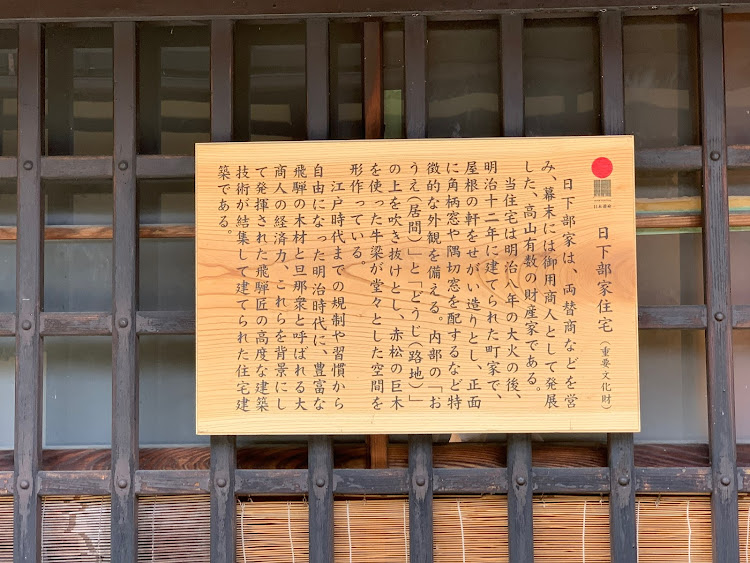 日下部家住宅（重要文化財）
日下部家は、両替商などを営
み、幕末には御用商人として発展
した、高山有数の財産家である。
当住宅は明治八年の大火の後、
明治十二年に建てられた町家で、
屋根の軒をせがい造りとし、正面
に角柄窓や隅切窓を配するなど特
徴的な外観を備える。内部の「お
うえ(居間)」と「どうじ(路地)」
の上を吹き抜けとし、赤松の巨木
を使った牛梁が堂々とした空間を
形作っている。
江戸時代までの規制や習慣から
自由になった明治時代に、豊富な
飛騨の木材と旦那衆と呼ばれる大
商人の経済力、これらを背景にし
て発揮された飛騨匠の高度な建築
技術が結集して建てられた住宅建
築である。